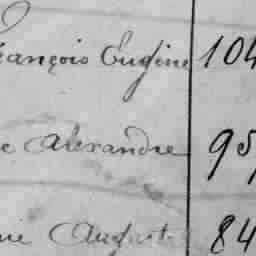 rançois Eugène 104
e Alexandre 95
ie Auguste 84